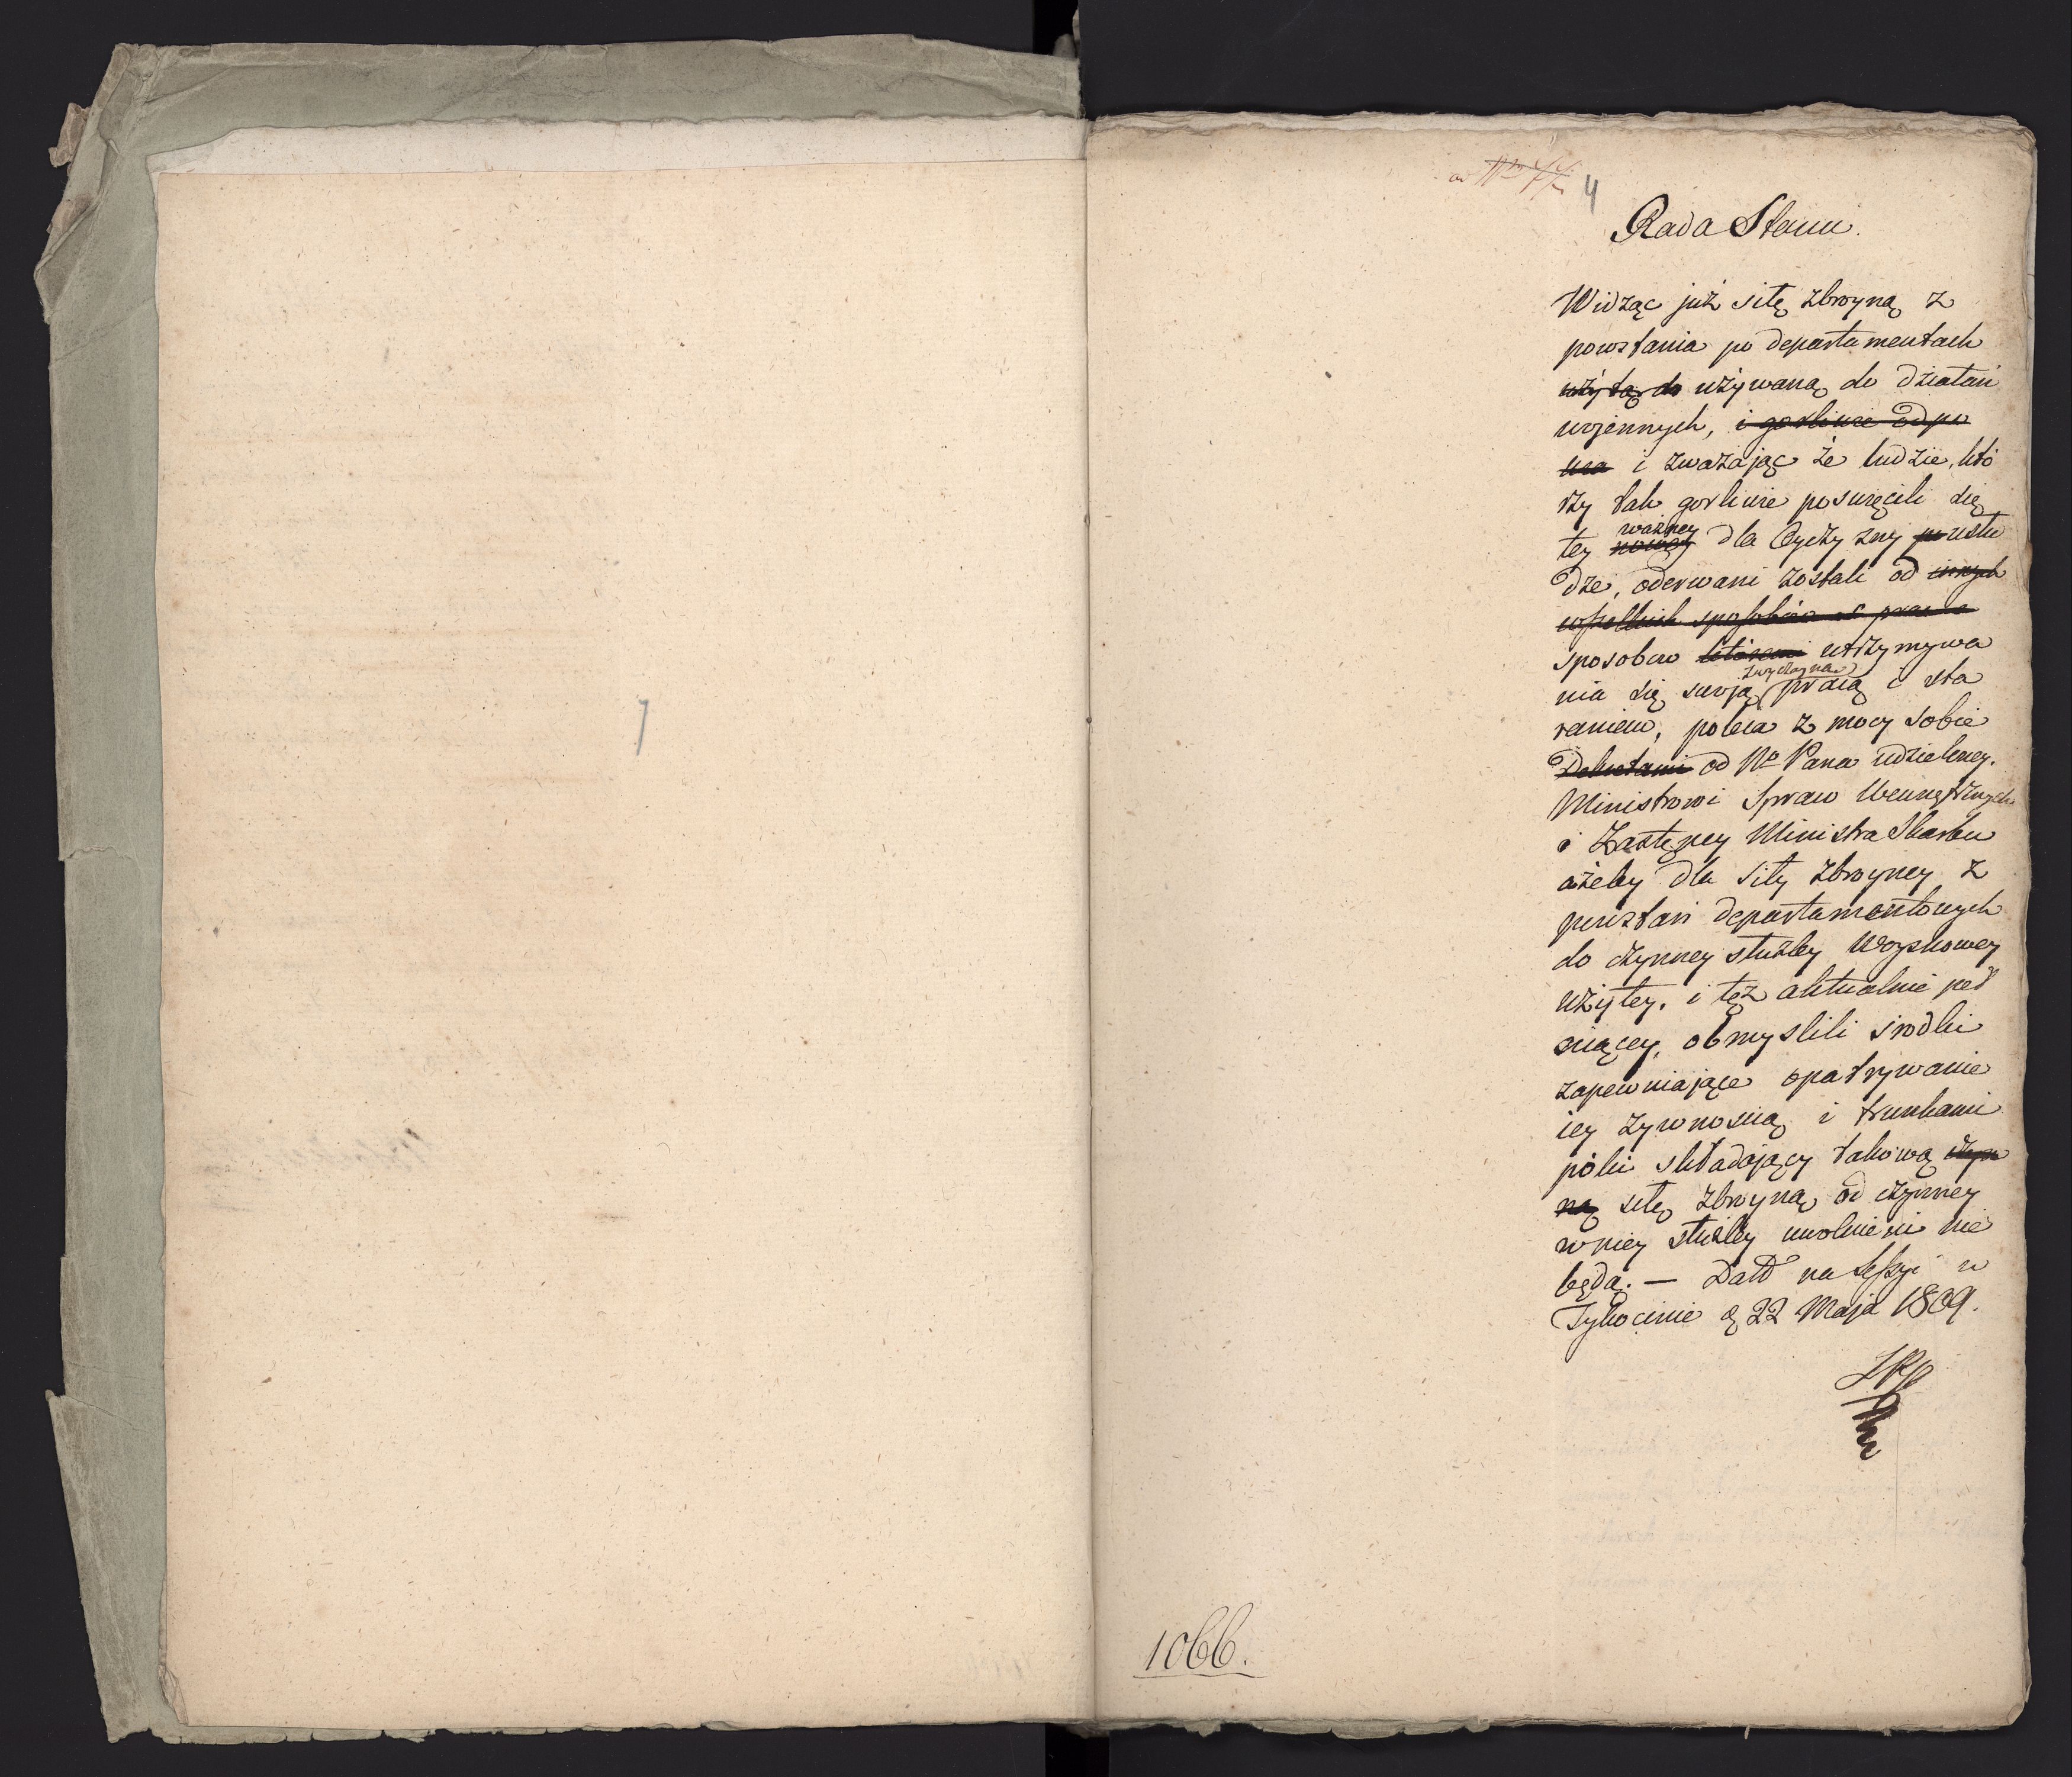 4
Rada Stanu.
Widząc już siłę zbroyną z
powstania po departamentach
użytą do używaną do działań
wojennych, i gorliwie odpo
wia i zważając że ludzie, któ
rzy tak gorliwie poswięcili się
ważney
tey nowey dla Oyczyzny po usłu
dze, oderwani zostali od innych
wszelkich sposobów
sposobow któremi utrzymywa
zwyczayną
nia się swoją pracą i sta
raniem, poleca z mocy sobie
Dekretami od No Pana udzieloney.
Ministrowi Spraw Wewnętrznych
i Zastępcy Ministra Skarbu
ażeby dla siły zbroyney z
powstań departamentowych
do czynney służby Woyskowey
użytey, i tęż aktualnie peł
niącey, obmyslili srodki
zapewniające opatrywanie
iey żywnoscią i trunkami
póki składający takową czyn
ną siłę zbroyną od czynney
w niey służby uwolnieni nie
będą. — Datt na Sessyi w
Tykocinie d 22 Maja 1809.
7
1066.